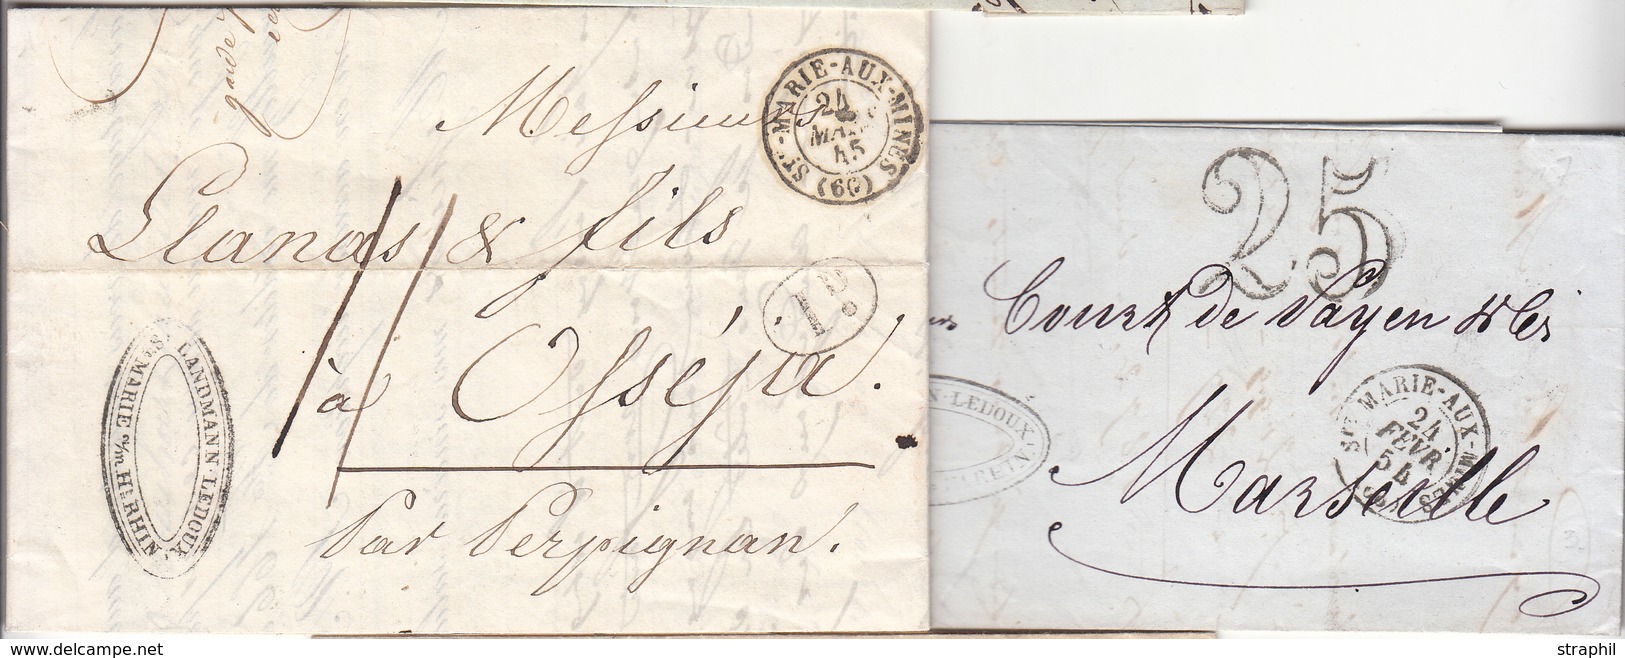 garde
Messieurs
Llanas & fils
à Osséja.
Par Perpignan.
Ste-MARIE-AUX-MINES (66)
24
MARS
45
1D.
LANDMANN-LEDOUX,
Ste MARIE a/m Ht RHIN
25
Court de Payen & Cie
Marseille
Ste MARIE-AUX-MINES (66)
24
FEVR
54
LEDOUX
straphil